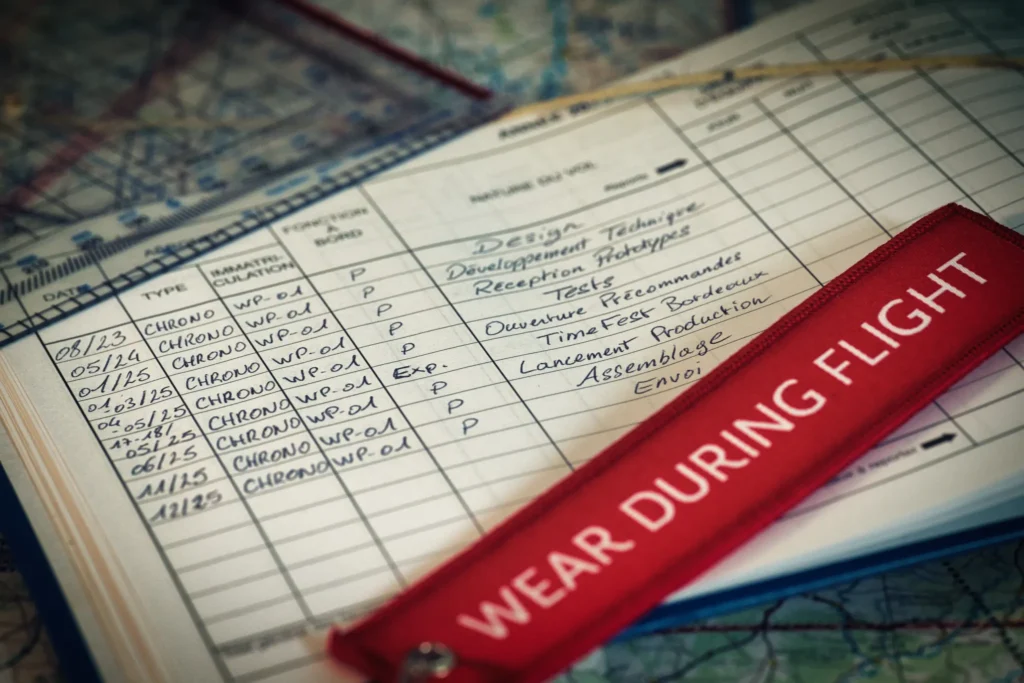 NATURE DU VOL
DATE TYPE IMMATRI-CULATION FONCTION À BORD
08/23 CHRONO WP-01 P Design
05/24 CHRONO WP-01 P Développement Technique
01/25 CHRONO WP-01 P Réception Prototypes
01-03/25 CHRONO WP-01 P Tests
04-05/25 CHRONO WP-01 P Ouverture Précommandes
17-18/05/25 CHRONO WP-01 Exp. TimeFest Bordeaux
06/25 CHRONO WP-01 P Lancement Production
11/25 CHRONO WP-01 P Assemblage
12/25 CHRONO WP-01 P Envoi
à reporter
WEAR DURING FLIGHT